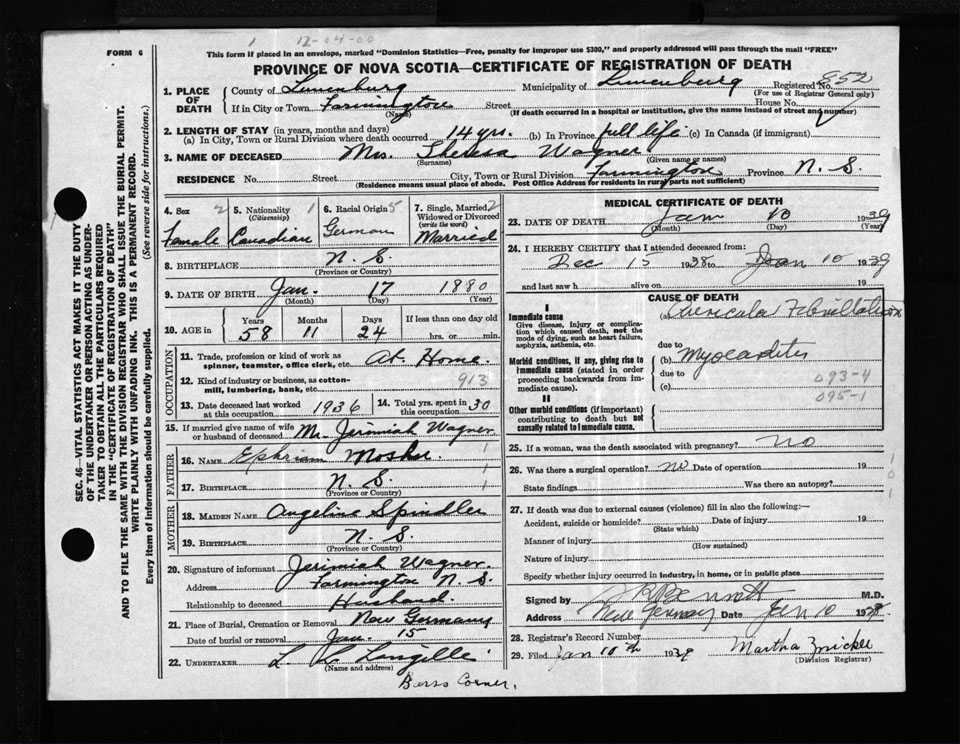 1 12-04-00
FORM 6
This form if placed in an envelope, marked "Dominion Statistics—Free, penalty for improper use $300," and properly addressed will pass through the mail "FREE"
PROVINCE OF NOVA SCOTIA—CERTIFICATE OF REGISTRATION OF DEATH
SEC. 46—VITAL STATISTICS ACT MAKES IT THE DUTY
OF THE UNDERTAKER OR PERSON ACTING AS UNDER-
TAKER TO OBTAIN ALL THE PARTICULARS REQUIRED
IN THE "CERTIFICATE OF REGISTRATION OF DEATH"
AND TO FILE THE SAME WITH THE DIVISION REGISTRAR WHO SHALL ISSUE THE BURIAL PERMIT.
WRITE PLAINLY WITH UNFADING INK. THIS IS A PERMANENT RECORD.
Every item of information should be carefully supplied. (See reverse side for instructions.)
1. PLACE OF DEATH County of Lunenburg Municipality of Lunenburg Registered No. 852
(For use of Registrar General only)
If in City or Town Farmington Street House No.
(Name) (If death occurred in a hospital or institution, give the name instead of street and number)
2. LENGTH OF STAY (in years, months and days)
(a) In City, Town or Rural Division where death occurred 14 yrs. (b) In Province full life (c) In Canada (if immigrant)
3. NAME OF DECEASED Mrs. Theresa Wagner
(Surname) (Given name or names)
RESIDENCE No. Street City, Town or Rural Division Farmington Province N. S.
(Residence means usual place of abode. Post Office Address for residents in rural parts not sufficient)
4. Sex 2 Female
5. Nationality (Citizenship) 1 Canadian
6. Racial Origin 5 German
7. Single, Married, Widowed or Divorced (write the word) 2 Married
8. BIRTHPLACE N. S.
(Province or Country)
9. DATE OF BIRTH Jan. 17 1880
(Month) (Day) (Year)
10. AGE in Years 58 Months 11 Days 24 If less than one day old hrs. or min.
OCCUPATION
11. Trade, profession or kind of work as spinner, teamster, office clerk, etc. At Home.
12. Kind of industry or business, as cotton-mill, lumbering, bank, etc. 913
13. Date deceased last worked at this occupation 1936
14. Total yrs. spent in this occupation 30
15. If married give name of wife or husband of deceased Mr. Jerimiah Wagner
FATHER
16. NAME Ephriam Mosher 1
17. BIRTHPLACE N. S. 1
(Province or Country)
MOTHER
18. MAIDEN NAME Angeline Spindler
19. BIRTHPLACE N. S.
(Province or Country)
20. Signature of informant Jerimiah Wagner.
Address Farmington N. S.
Relationship to deceased Husband.
21. Place of Burial, Cremation or Removal New Germany
Date of burial or removal Jan. 15
22. UNDERTAKER L. C. Langille
(Name and address)
Barss Corner.
MEDICAL CERTIFICATE OF DEATH
23. DATE OF DEATH Jan 10 1939
(Month) (Day) (Year)
24. I HEREBY CERTIFY that I attended deceased from:
Dec 15 1938 to Jan 10 1939
and last saw h alive on 19
CAUSE OF DEATH
I
Immediate cause
Give disease, injury or complication which caused death, not the mode of dying, such as heart failure, asphyxia, asthenia, etc.
(a) Auricula Febrillation
due to
Morbid conditions, if any, giving rise to immediate cause (stated in order proceeding backwards from immediate cause).
(b) Myocardites
due to 093-4
(c) 095-1
II
Other morbid conditions (if important) contributing to death but not causally related to immediate cause.
25. If a woman, was the death associated with pregnancy? no
26. Was there a surgical operation? no Date of operation 19
State findings Was there an autopsy?
1 0 1
27. If death was due to external causes (violence) fill in also the following:—
Accident, suicide or homicide? Date of injury 19
(State which)
Manner of injury
(How sustained)
Nature of injury
Specify whether injury occurred in industry, in home, or in public place
Signed by Bennett M.D.
Address New Germany Date Jan 10 1939
28. Registrar's Record Number
29. Filed Jan 10th 1939 Martha Zwicker
(Division Registrar)